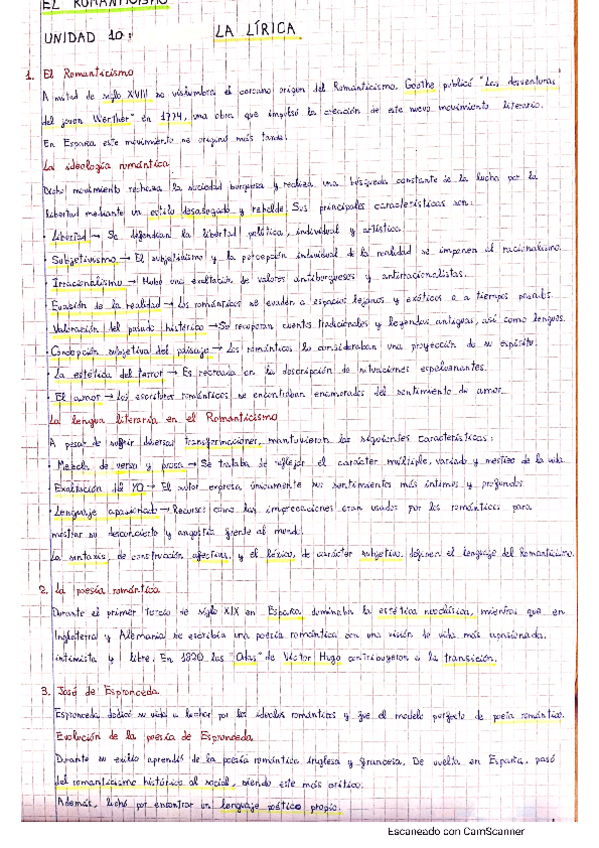 EL ROMANTICISMO
UNIDAD 10: LA LÍRICA
1. El Romanticismo
A mitad de siglo XVIII se vislumbra el cercano origen del Romanticismo. Goethe publicó "Las desventuras
del joven Werther" en 1774, una obra que impulsó la creación de este nuevo movimiento literario.
En España este movimiento se originó más tarde.
La ideología romántica
Dicho movimiento rechaza la sociedad burguesa y realiza una búsqueda constante de la lucha por la
libertad mediante un estilo desasosegado y rebelde. Sus principales características son:
· Libertad → Se defendían la libertad política, individual y artística.
· Subjetivismo → El subjetivismo y la percepción individual de la realidad se imponen al racionalismo.
· Irracionalismo → Hubo una exaltación de valores antiburgueses y antirracionalistas.
· Evasión de la realidad → Los románticos se evaden a espacios lejanos y exóticos o a tiempos pasados.
· Valoración del pasado histórico → Se recuperan cuentos tradicionales y leyendas antiguas, así como lenguas.
· Concepción subjetiva del paisaje → Los románticos lo consideraban una proyección de su espíritu.
· La estética del terror → Es recreada en la descripción de situaciones espeluznantes.
· El amor → Los escritores románticos se encontraban enamorados del sentimiento de amor.
La lengua literaria en el Romanticismo
A pesar de sufrir diversas transformaciones, mantuvieron las siguientes características:
· Mezcla de verso y prosa → Se trataba de reflejar el carácter múltiple, variado y mestizo de la vida.
· Exaltación del YO → El autor expresa únicamente sus sentimientos más íntimos y profundos.
· Lenguaje apasionado → Recursos como las imprecaciones eran usados por los románticos para
mostrar su desconcierto y angustia frente al mundo.
La sintaxis, de construcción afectiva, y el léxico, de carácter subjetivo, definen el lenguaje del Romanticismo.
2. La poesía romántica
Durante el primer tercio de siglo XIX en España dominaba la estética neoclásica, mientras que en
Inglaterra y Alemania se escribía una poesía romántica con una visión de vida más apasionada,
intimista y libre. En 1820 las "Odas" de Víctor Hugo contribuyeron a la transición.
3. José de Espronceda
Espronceda dedicó su vida a luchar por los ideales románticos y fue el modelo perfecto de poeta romántico.
Evolución de la poesía de Espronceda
Durante su exilio aprendió de la poesía romántica inglesa y francesa. De vuelta en España, pasó
del romanticismo histórico al social, siendo este más crítico.
Además, luchó por encontrar un lenguaje poético propio.
Escaneado con CamScanner